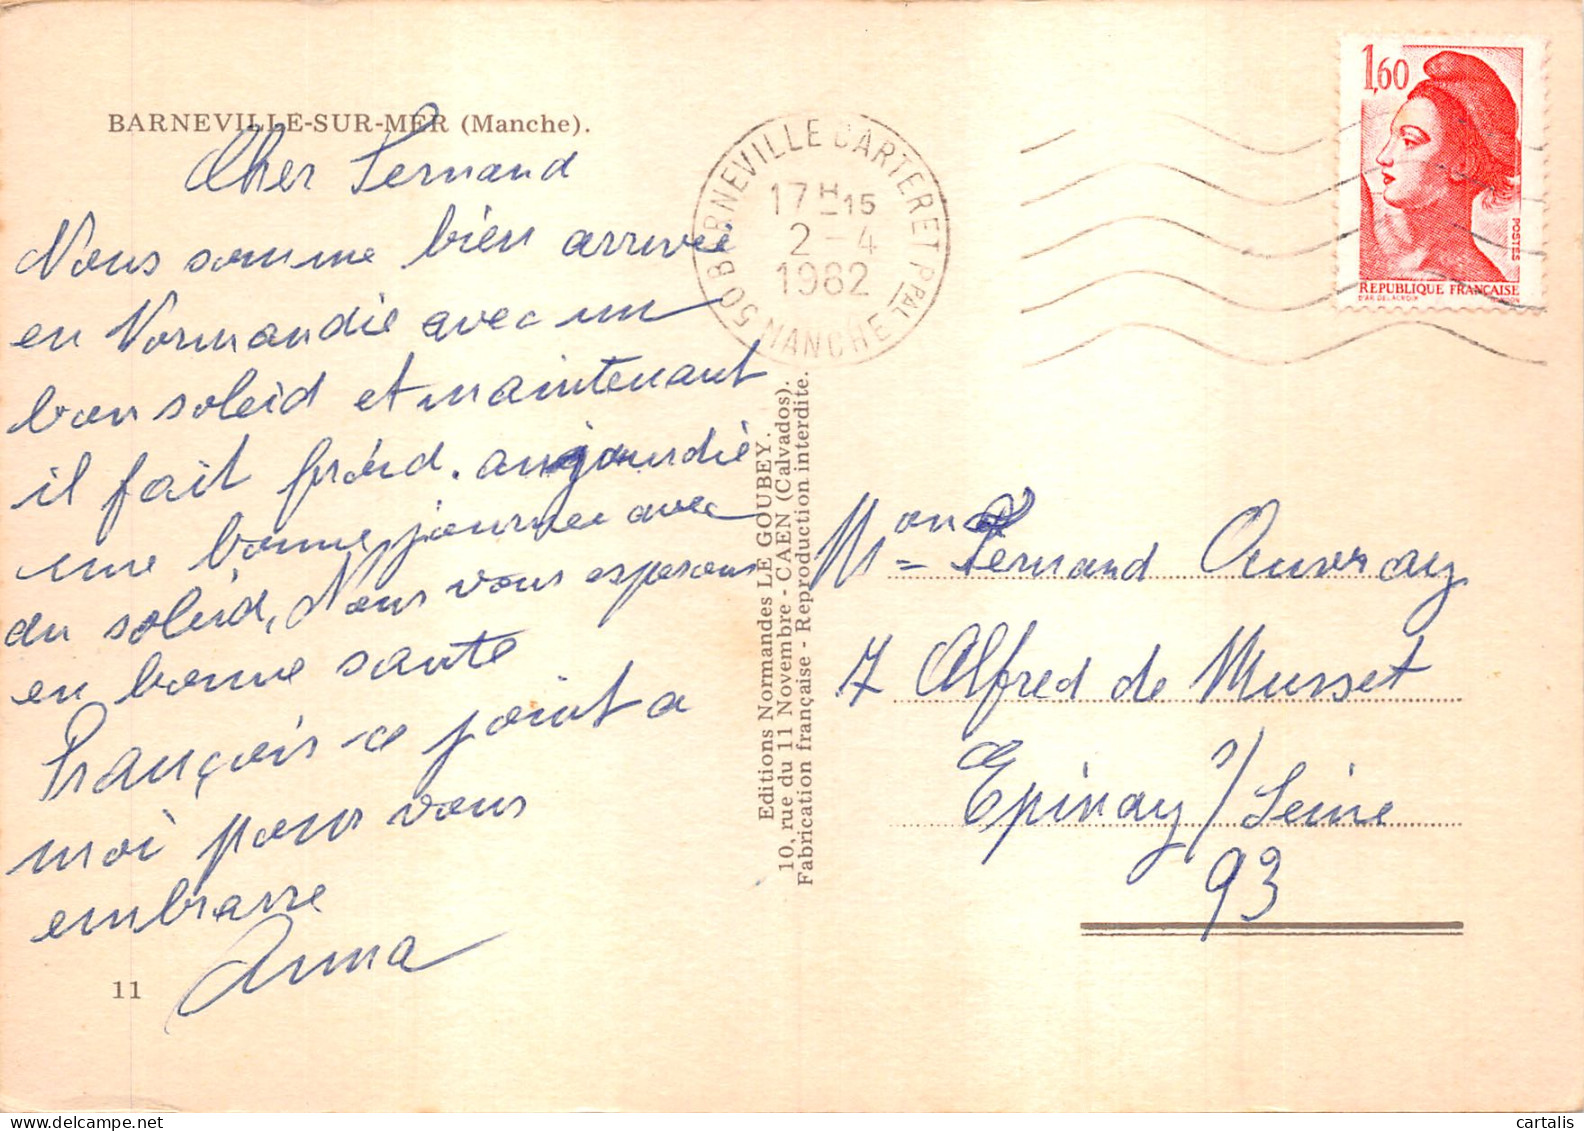 BARNEVILLE-SUR-MER (Manche).
Cher Fernand
Nous somme bien arrivée
en Normandie avec un
bon soleid et maintenant
il fait froid. aujourdié
une bonne journee avec
du soleid, Nous vous esperons
en bonne sante
François ce joint a
moi pour vous
embrasse
Anna
11
50 BARNEVILLE CARTERET PPAL
17H15
2-4
1982
MANCHE
Editions Normandes LE GOUBEY.
10, rue du 11 Novembre - CAEN (Calvados).
Fabrication française - Reproduction interdite.
1,60
POSTES
REPUBLIQUE FRANÇAISE
D'AP. DELACROIX
Fernand Auvray
7 Alfred de Musset
Epinay s/ Seine
93
cartalis